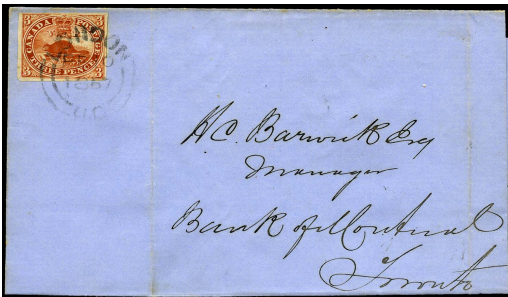 CANADA POSTAGE
THREE PENCE
3 3 3 3
NDON
U.C
H C. Barwick Esq
Manager
Bank of Montreal
Toronto